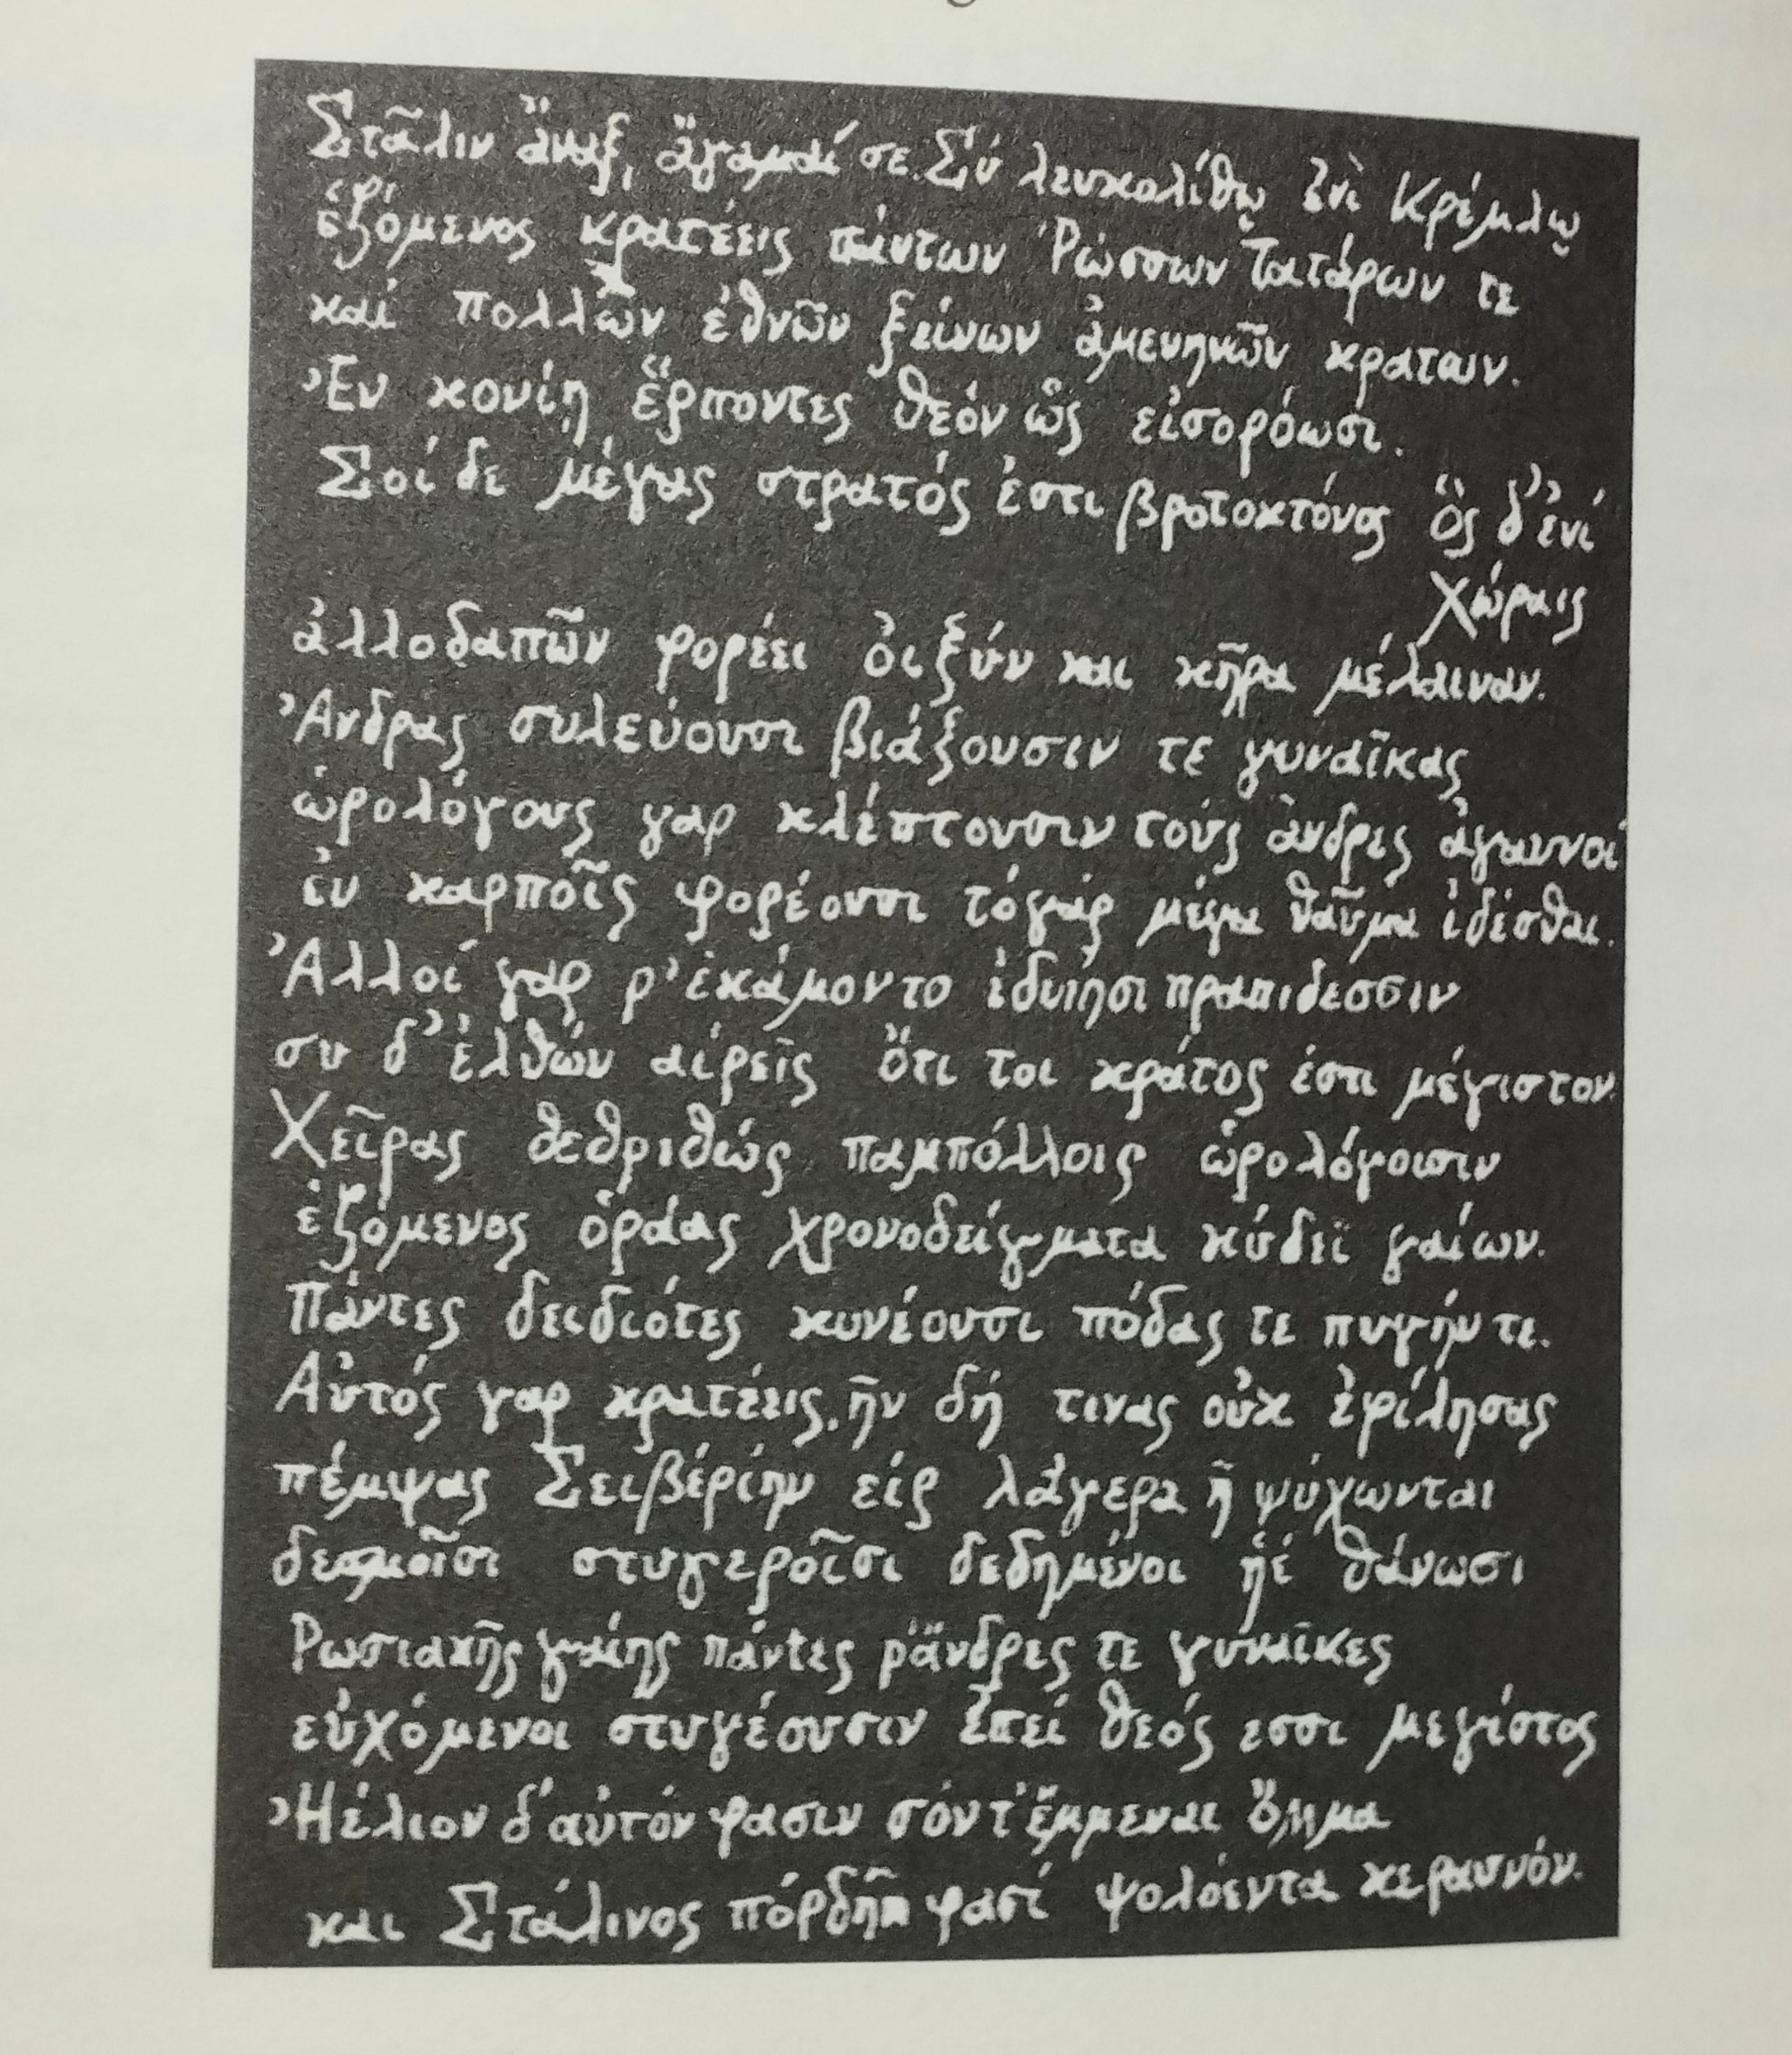 Στᾶλιν ἄναξ, ἄγαμαί σε. Σύ λευκολίθῳ ἐνὶ Κρέμλῳ
ἑζόμενος κρατέεις πάντων Ῥώσσων Τατάρων τε
καί πολλῶν ἐθνῶν ξείνων ἀμενηνῶν κρατων.
Ἐν κονίῃ ἕρποντες θεόν ὣς εἰσορόωσι.
Σοί δε μέγας στρατός ἐστι βροτοκτόνος ὃς δ' ἐνί
Χώραις
ἀλλοδαπῶν φορέει ὀιξύν και κῆρα μέλαιναν.
Ἀνδρας συλεύουσι βιάζουσιν τε γυναῖκας
ὡρολόγους γαρ κλέπτουσιν τούς ἀνδρες ἀγαυνοί
ἐν καρποῖς φορέουσι τόγάρ μέγα θαῦμα ἰδέσθαι.
Ἀλλοί γαρ ρ' ἐκάμοντο ἰδυίησι πραπιδέσσιν
συ δ' ἐλθών αἱρεῖς ὅτι τοι κράτος ἐστι μέγιστον.
Χεῖρας θεθριθώς παμπόλλοις ὡρολόγοισιν
ἑζόμενος ὁράᾳς χρονοδείγματα κύδεϊ γαίων.
Πάντες δειδιότες κυνέουσι πόδας τε πυγήν τε.
Αὐτός γαρ κρατέεις, ἢν δή τινας οὐκ ἐφίλησας
πέμψας Σειβέρίην εἰς λάγερα ἢ ψύχωνται
δεσμοῖσι στυγεροῖσι δεδημένοι ἠέ θάνωσι
Ρωσιακῆς γαίης πάντες ρ' ἄνδρες τε γυναῖκες
εὐχόμενοι στυγέουσιν ἐπεί θεός εσσι μεγίστος
Ἠέλιον δ' αὐτόν φασιν σόν τ' ἔμμεναι ὄμμα
και Στάλινος πόρδην φασί ψολόεντα κεραυνόν.